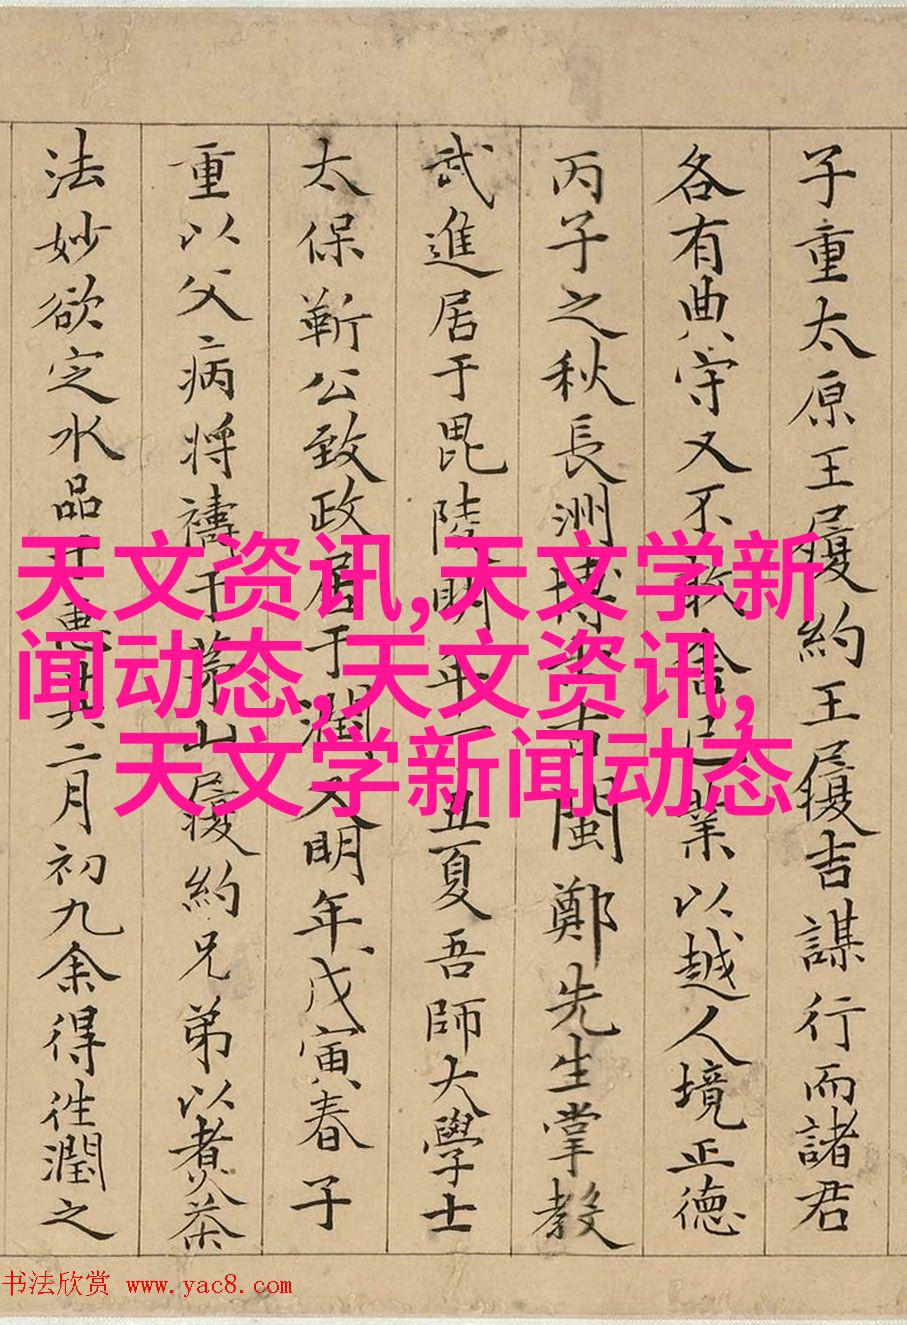 天文资讯,天文学新
闻动态,天文资讯,
天文学新闻动态
子重太原王履約王履吉謀行而諸君
各有典守又不敢舍己業以越人境正德
丙子之秋長洲博士古閩鄭先生掌教
武進居于毘陵明年丁丑夏吾師大學士
太保靳公致政居于潤又明年戊寅春子
重以父病將禱于茅山履約兄弟以煮茶
法妙欲定水品于惠二月初九余得往潤之
书法欣赏 www.yac8.com